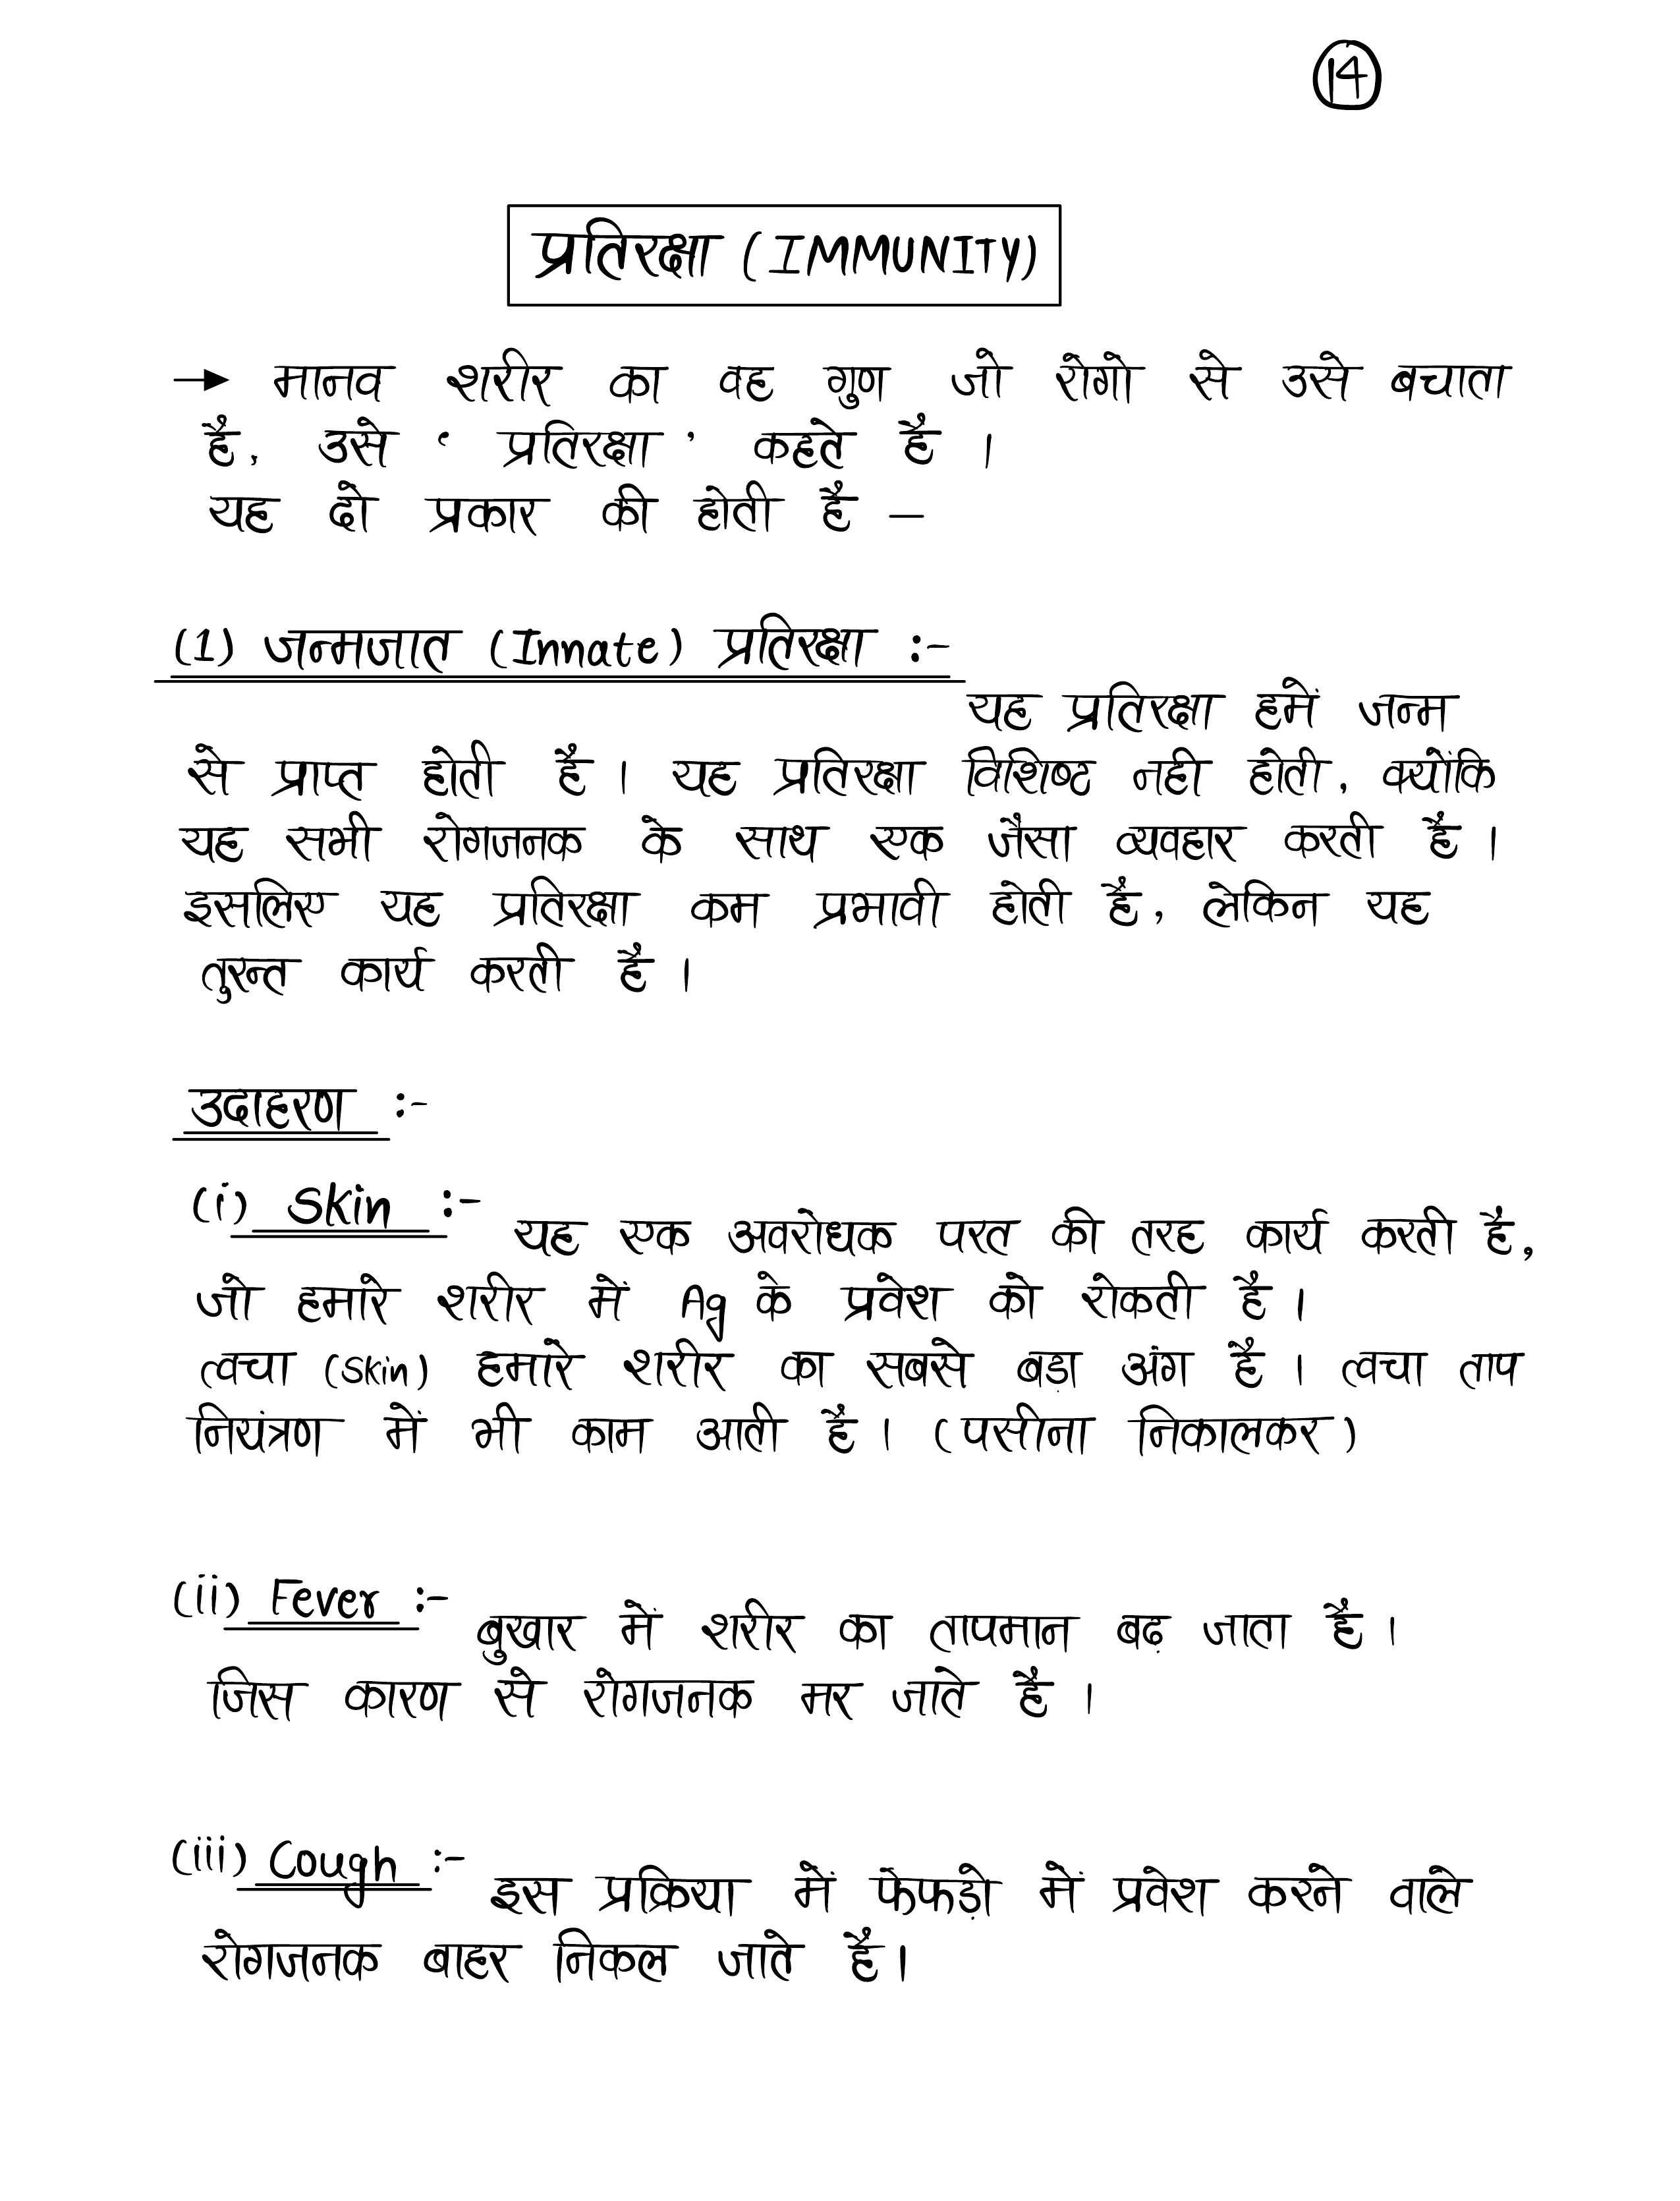 14
प्रतिरक्षा (IMMUNITY)
→ मानव शरीर का वह गुण जो रोगो से उसे बचाता
है, उसे ‘ प्रतिरक्षा ’ कहते है ।
यह दो प्रकार की होती है –
(1) जन्मजात (Innate) प्रतिरक्षा :-
यह प्रतिरक्षा हमें जन्म
से प्राप्त होती है । यह प्रतिरक्षा विशिष्ट नही होती, क्योंकि
यह सभी रोगजनक के साथ एक जैसा व्यवहार करती है ।
इसलिए यह प्रतिरक्षा कम प्रभावी होती है, लेकिन यह
तुरन्त कार्य करती है ।
उदाहरण :-
(i) Skin :- यह एक अवरोधक परत की तरह कार्य करती है,
जो हमारे शरीर में Ag के प्रवेश को रोकती है ।
त्वचा (Skin) हमारे शरीर का सबसे बड़ा अंग है । त्वचा ताप
नियंत्रण में भी काम आती है । (पसीना निकालकर)
(ii) Fever :- बुखार में शरीर का तापमान बढ़ जाता है ।
जिस कारण से रोगजनक मर जाते है ।
(iii) Cough :- इस प्रक्रिया में फेफड़ो में प्रवेश करने वाले
रोगजनक बाहर निकल जाते है ।